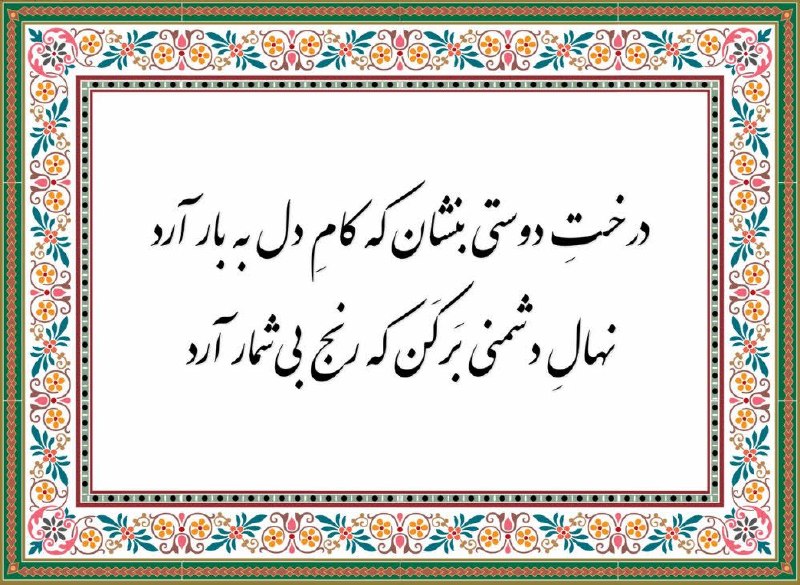 درختِ دوستی بنشان که کامِ دل به بار آرد
نهالِ دشمنی بَرکَن که رنج بی‌شمار آرد